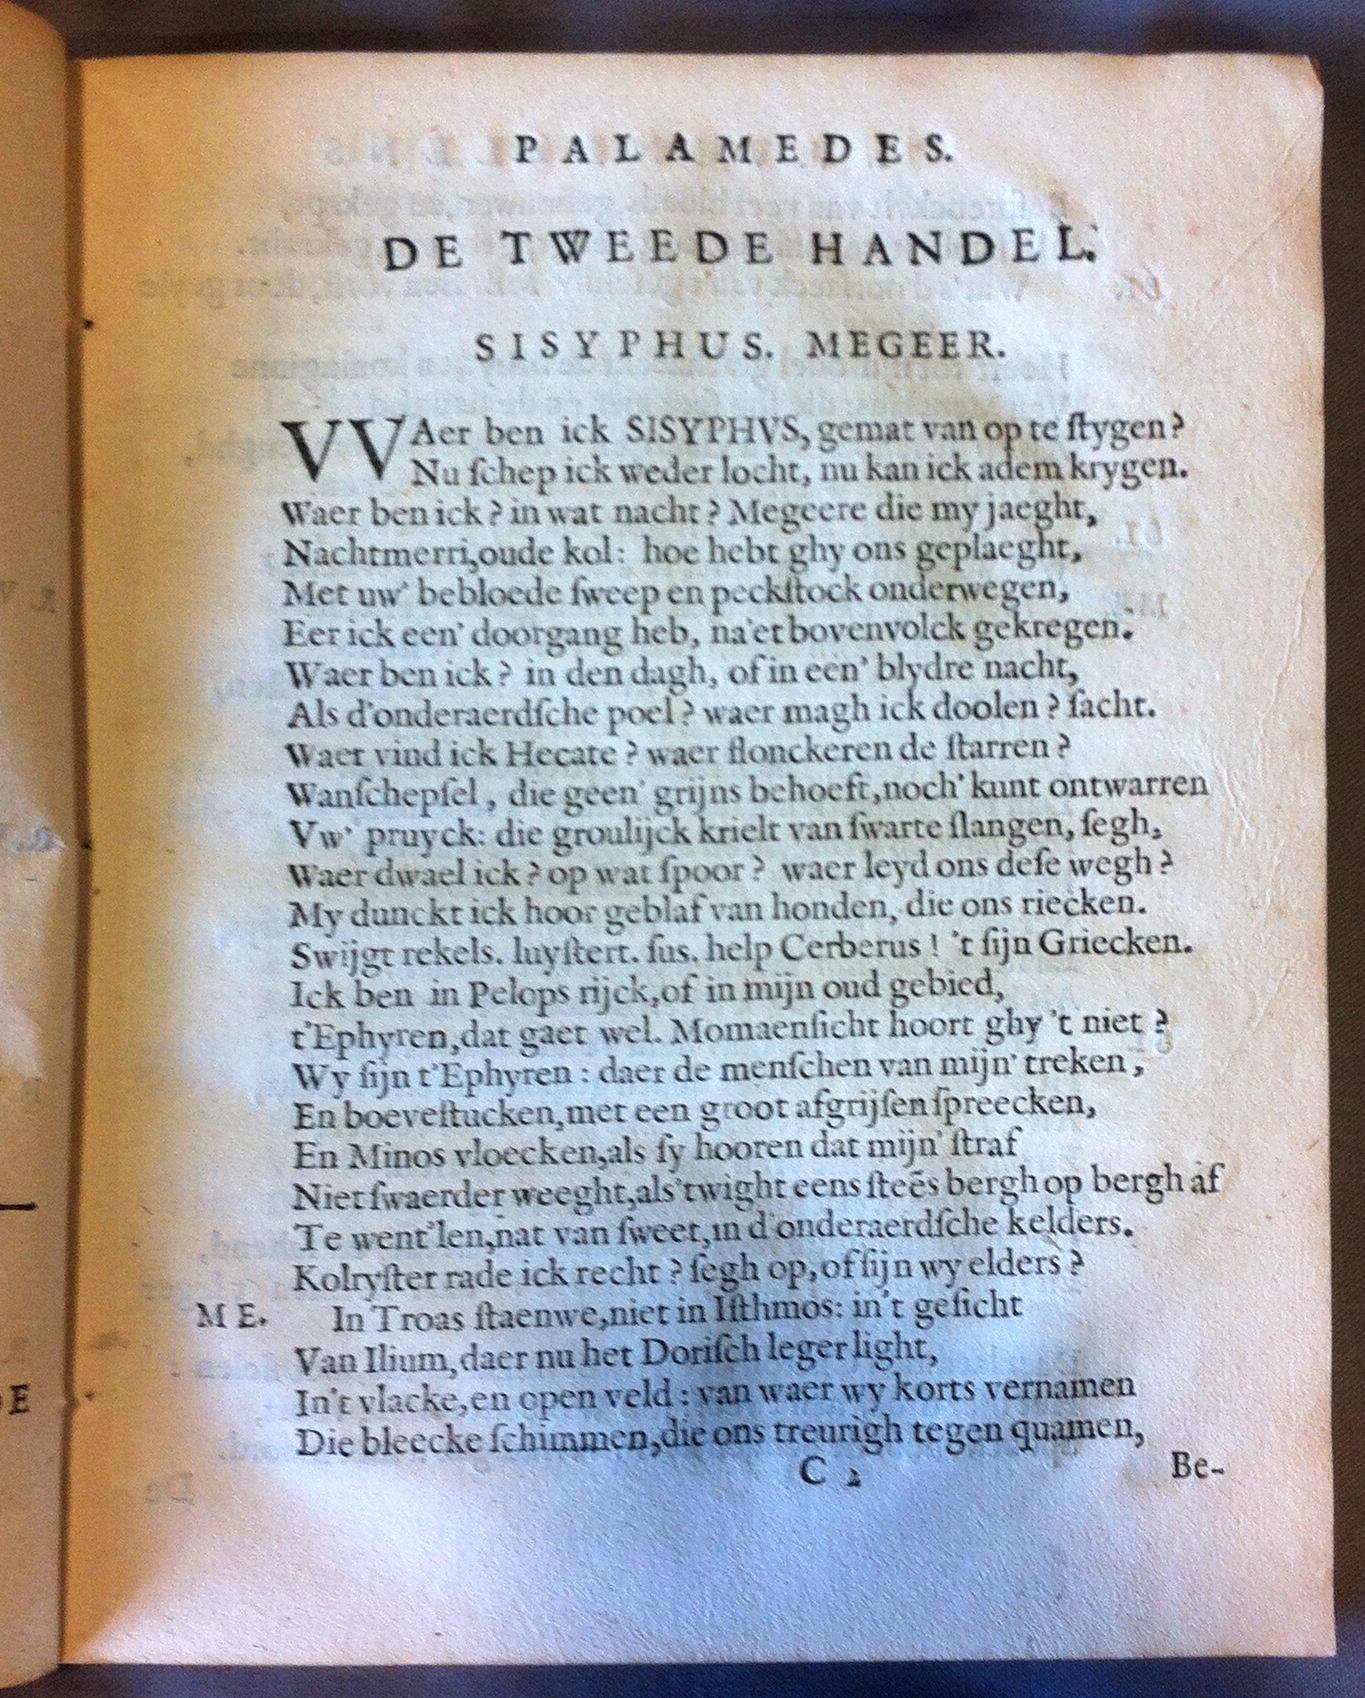 PALAMEDES.
DE TWEEDE HANDEL.
SISYPHUS. MEGEER.
VVAer ben ick SISYPHVS, gemat van op te ſtygen?
Nu ſchep ick weder locht, nu kan ick adem krygen.
Waer ben ick? in wat nacht? Megeere die my jaeght,
Nachtmerri, oude kol: hoe hebt ghy ons geplaeght,
Met uw' bebloede ſweep en peckſtock onderwegen,
Eer ick een' doorgang heb, na'et bovenvolck gekregen.
Waer ben ick? in den dagh, of in een' blydre nacht,
Als d'onderaerdſche poel? waer magh ick doolen? ſacht.
Waer vind ick Hecate? waer flonckeren de ſtarren?
Wanſchepſel, die geen' grijns behoeft, noch' kunt ontwarren
Vw' pruyck: die groulijck krielt van ſwarte ſlangen, ſegh,
Waer dwael ick? op wat ſpoor? waer leyd ons deſe wegh?
My dunckt ick hoor geblaf van honden, die ons riecken.
Swijgt rekels. luyſtert. ſus. help Cerberus! 't ſijn Griecken.
Ick ben in Pelops rijck, of in mijn oud gebied,
t'Ephyren, dat gaet wel. Momaenſicht hoort ghy 't niet?
Wy ſijn t'Ephyren: daer de menſchen van mijn' treken,
En boeveſtucken, met een groot afgrijſen ſpreecken,
En Minos vloecken, als ſy hooren dat mijn' ſtraf
Niet ſwaerder weeght, als 'twight eens ſteēs bergh op bergh af
Te went'len, nat van ſweet, in d'onderaerdſche kelders.
Kolryſter rade ick recht? ſegh op, of ſijn wy elders?
ME. In Troas ſtaen we, niet in Iſthmos: in't geſicht
Van Ilium, daer nu het Doriſch leger light,
In't vlacke, en open veld: van waer wy korts vernamen
Die bleecke ſchimmen, die ons treurigh tegen quamen,
C 2
Be-